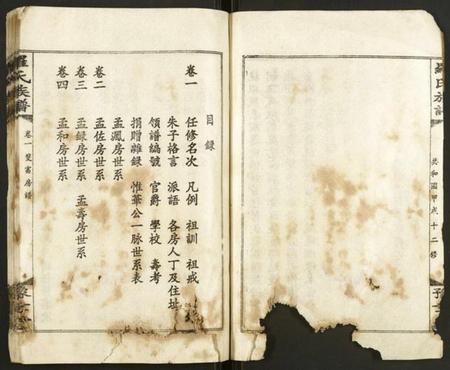 羅氏族譜
共和國甲戌十二修
豫章堂
目錄
卷一 任修名次 凡例 祖訓 祖戒
朱子格言 派語 各房人丁及住址
領譜編號 官爵 學校 壽考
捐贈雜錄 惟華公一脉世系表
孟鳳房世系
卷二 孟佐房世系
卷三 孟録房世系 孟壽房世系
卷四 孟和房世系
羅氏族譜
卷一
房譜
豫章堂